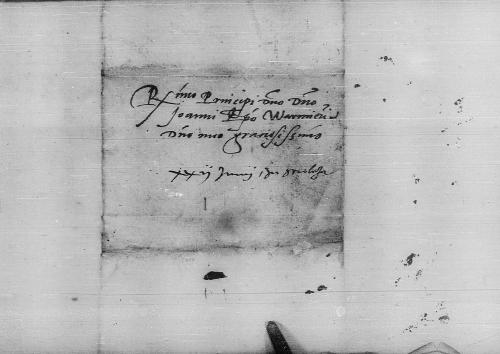 R̃mo Principi dno Dno
Joanni Epo Warmien̄
Dno meo gratiosissimo
xxij Junij